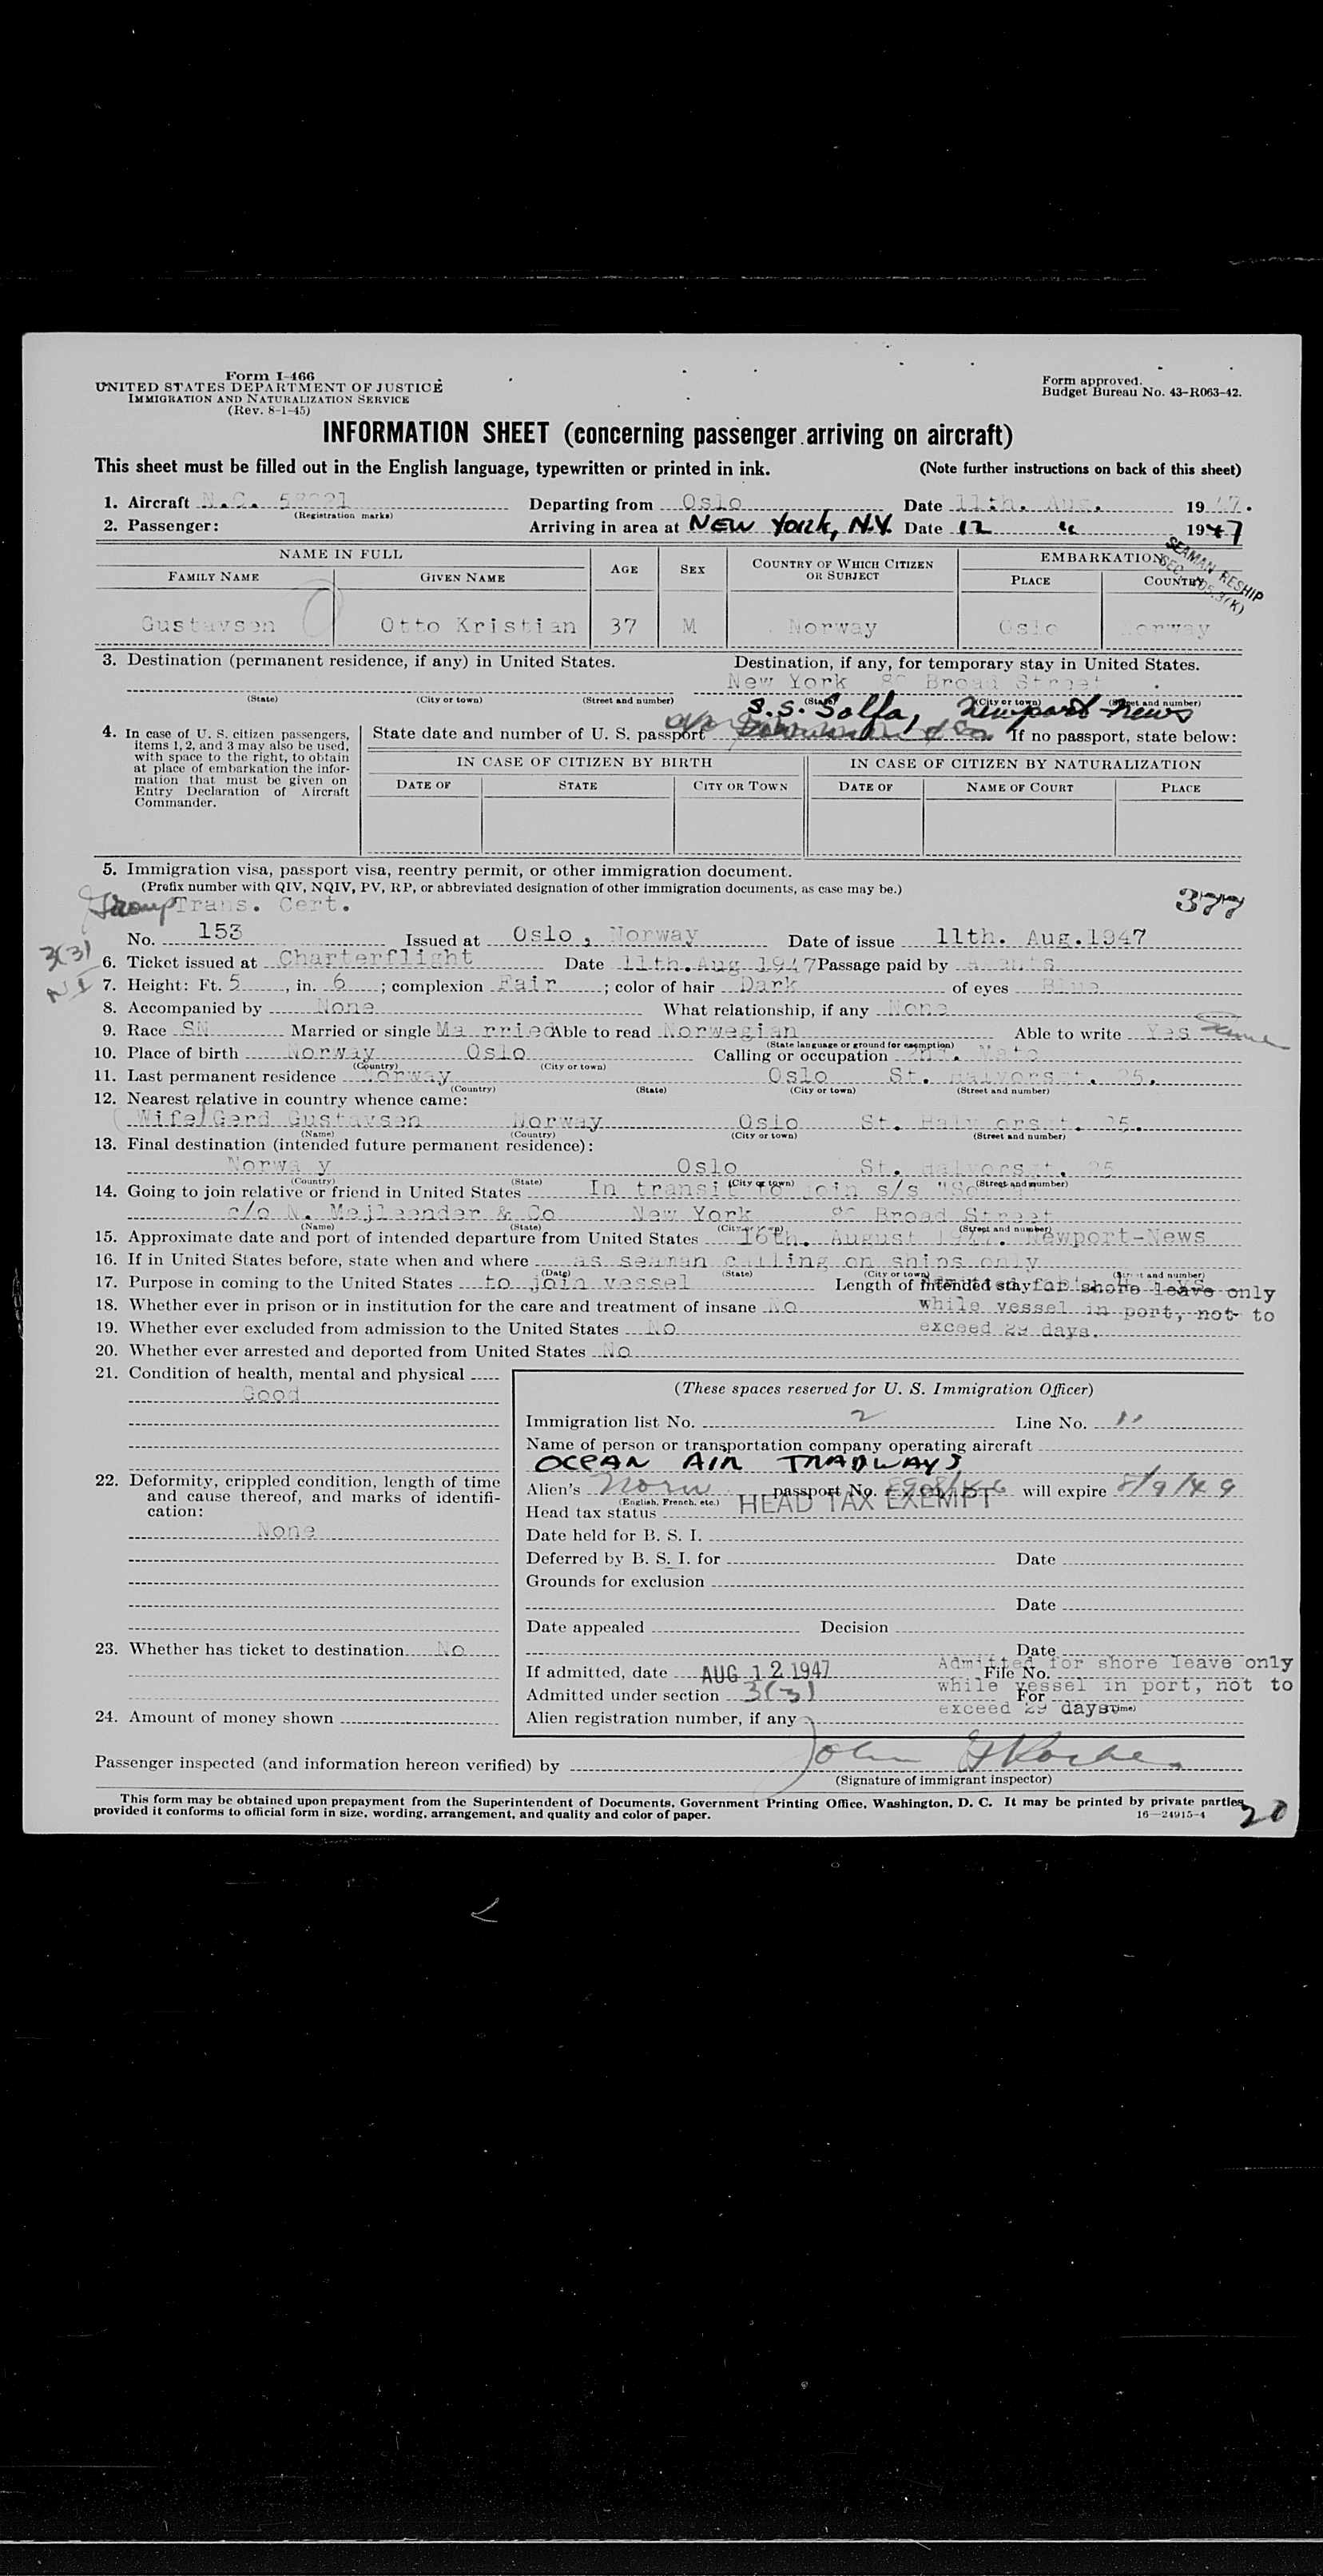 Form I-466
UNITED STATES DEPARTMENT OF JUSTICE
IMMIGRATION AND NATURALIZATION SERVICE
(Rev. 8-1-45)
Form approved.
Budget Bureau No. 43-R063-42.
INFORMATION SHEET (concerning passenger arriving on aircraft)
This sheet must be filled out in the English language, typewritten or printed in ink. (Note further instructions on back of this sheet)
1. Aircraft N.C. Departing from Oslo Date 11th. Aug. 1947.
(Registration marks)
2. Passenger: Arriving in area at NEW York, N.Y. Date 12 " 1947
SEAMAN RESHIP
NAME IN FULL AGE SEX COUNTRY OF WHICH CITIZEN OR SUBJECT EMBARKATION
FAMILY NAME GIVEN NAME PLACE COUNTRY
Gustavsen Otto Kristian 37 M Norway Oslo Norway
3. Destination (permanent residence, if any) in United States. Destination, if any, for temporary stay in United States.
New York 80 Broad Street
(State) (City or town) (Street and number) (State) (City or town) (Street and number)
S.S. Solfa, Newport News
4. In case of U. S. citizen passengers, items 1, 2, and 3 may also be used, with space to the right, to obtain at place of embarkation the information that must be given on Entry Declaration of Aircraft Commander.
State date and number of U. S. passport If no passport, state below:
IN CASE OF CITIZEN BY BIRTH IN CASE OF CITIZEN BY NATURALIZATION
DATE OF STATE CITY OR TOWN DATE OF NAME OF COURT PLACE
5. Immigration visa, passport visa, reentry permit, or other immigration document.
(Prefix number with QIV, NQIV, PV, RP, or abbreviated designation of other immigration documents, as case may be.)
377
Group Trans. Cert.
No. 153 Issued at Oslo, Norway Date of issue 11th. Aug.1947
3(3)
6. Ticket issued at Charterflight Date 11th.Aug 1947 Passage paid by Agents
7. Height: Ft. 5, in. 6; complexion Fair; color of hair Dark of eyes Blue
8. Accompanied by None What relationship, if any None
9. Race SN Married or single Ma rried Able to read Norwegian Able to write Yes Same
(State language or ground for exemption)
10. Place of birth Norway Oslo Calling or occupation 2nd. Mate
(Country) (City or town)
11. Last permanent residence Norway Oslo St. Halvorsgt. 25.
(Country) (State) (City or town) (Street and number)
12. Nearest relative in country whence came:
Wife/Gerd Gustavsen Norway Oslo St. Halvorsgt. 25.
(Name) (Country) (City or town) (Street and number)
13. Final destination (intended future permanent residence):
Norwa y Oslo St. Halvorsgt. 25
(Country) (State) (City or town) (Street and number)
14. Going to join relative or friend in United States In transit to join s/s
c/o N. Mejlaender & Co New York 80 Broad Street
(Name) (State) (City or town) (Street and number)
15. Approximate date and port of intended departure from United States 16th. August 1947. Newport-News
16. If in United States before, state when and where as seaman calling on ships only
(Date) (State) (City or town) (Street and number)
17. Purpose in coming to the United States to join vessel Length of intended stay for shore leave only
18. Whether ever in prison or in institution for the care and treatment of insane No while vessel in port, not to
19. Whether ever excluded from admission to the United States No exceed 29 days.
20. Whether ever arrested and deported from United States No
21. Condition of health, mental and physical
Good
22. Deformity, crippled condition, length of time and cause thereof, and marks of identification:
None
23. Whether has ticket to destination No
24. Amount of money shown
(These spaces reserved for U. S. Immigration Officer)
Immigration list No. 2 Line No. 11
Name of person or transportation company operating aircraft
OCEAN AIR TRADWAYS
Alien's Norw passport No. will expire 8/9/49
(English, French, etc.)
Head tax status HEAD TAX EXEMPT
Date held for B. S. I.
Deferred by B. S. I. for Date
Grounds for exclusion
Date
Date appealed Decision
Date
If admitted, date AUG 12 1947 File No.
Admitted for shore leave only
while vessel in port, not to
exceed 29 days.
Admitted under section 3(3) For (Time)
Alien registration number, if any
Passenger inspected (and information hereon verified) by John
(Signature of immigrant inspector)
This form may be obtained upon prepayment from the Superintendent of Documents, Government Printing Office, Washington, D. C. It may be printed by private parties,
provided it conforms to official form in size, wording, arrangement, and quality and color of paper. 16—24915-4
20